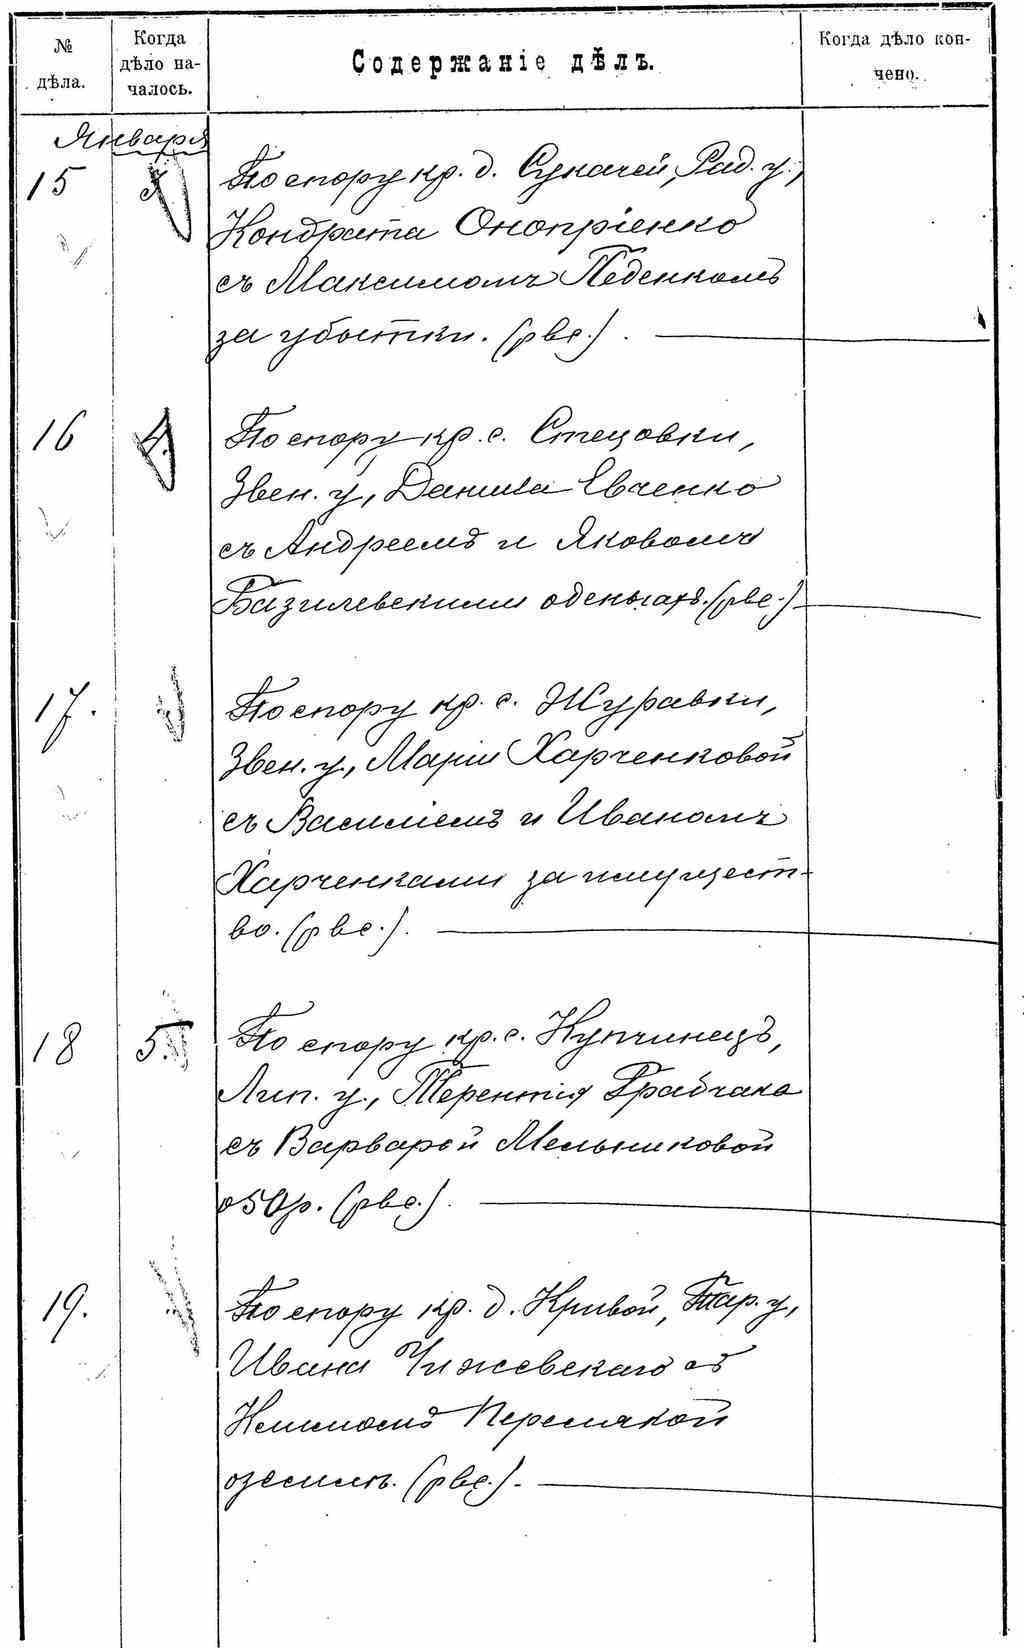 № дѣла.
Когда дѣло на-
чалось.
Содержаніе дѣлъ.
Когда дѣло кон-
чено.
Января
15
По спору кр. д. Сукачей, Рад. у.,
Кондрата Оноприенко
съ Максимомъ Педенкомъ
за убытки. (рвс.).
16
4.
По спору кр. с. Стецовки,
Звен. у., Данила Евченко
съ Андреемъ и Яковомъ
Базилевскими о деньгахъ. (рвс.)
17.
По спору кр. с. Журавки,
Звен. у., Маріи Харченковой
съ Василіемъ и Иваномъ
Харченками за имущест-
во. (рвс.).
18
5.
По спору кр. с. Купчинецъ,
Лип. у., Терентія Грабчака
съ Варварой Мельниковой
о 50 р. (рвс.).
19.
По спору кр. д. Кривой, Тар. у.,
Ивана Чижевскаго съ
Климомъ Перемякой
о землѣ. (рвс.).